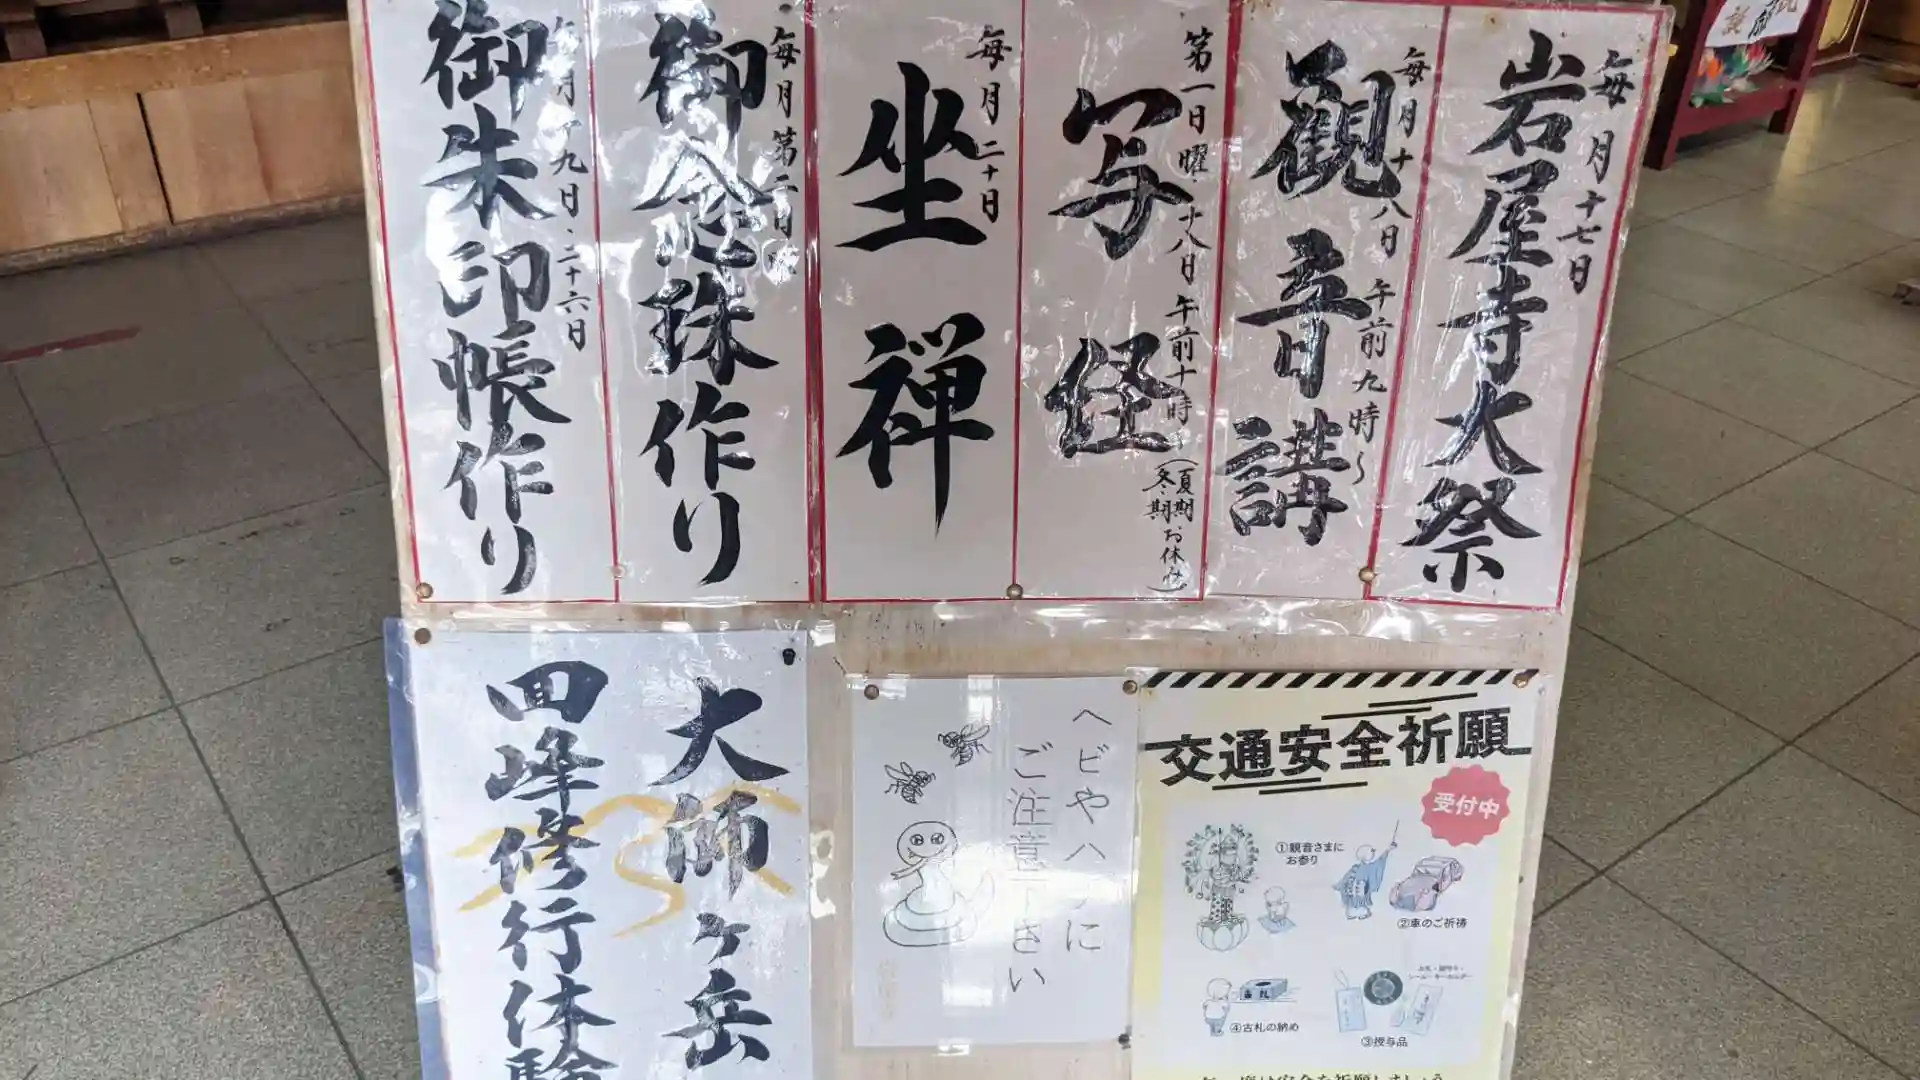 毎月十七日
岩屋寺大祭
毎月十八日 午前九時〜
観音講
第一日曜・十八日 午前十時〜
(夏期
冬期お休み)
写経
毎月二十日
坐禅
毎月第二日曜
御念珠作り
毎月十九日・二十六日
御朱印帳作り
大師ヶ岳
四峰修行体験
ヘビやハチに
ご注意下さい
交通安全祈願
受付中
①観音さまに
お参り
②車のご祈祷
④古札の納め
古札
③授与品